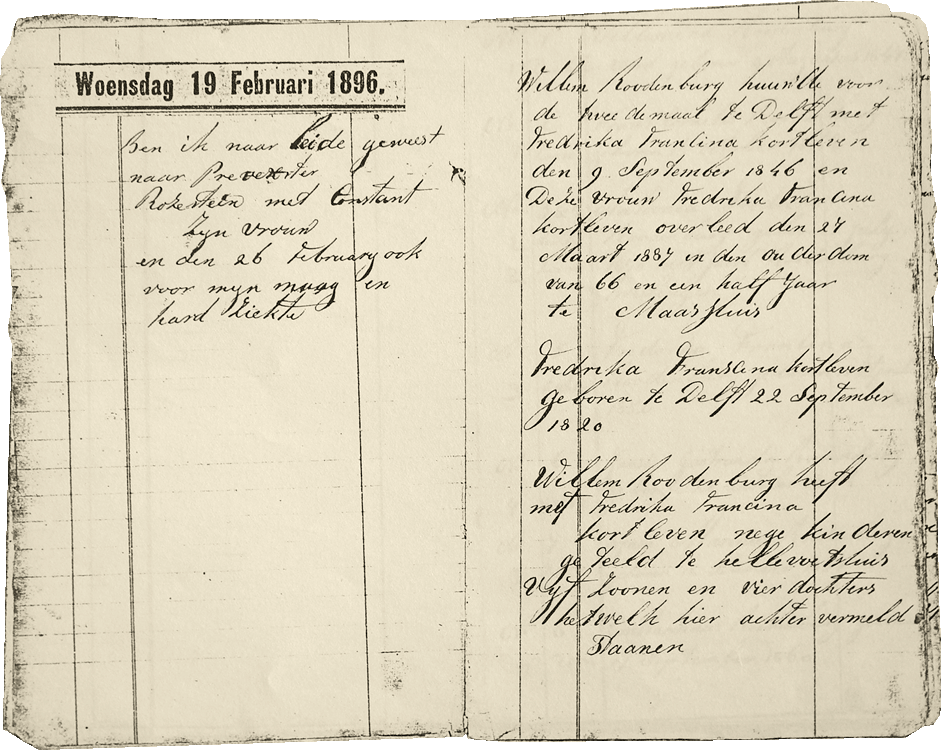 Woensdag 19 Februari 1896.
Ben ik naar leide geweest
naar
Rosestein met Constant
Zyn vrouw
en den 26 February ook
voor myn maag en
hard Ziekte
Willem Roodenburg huurde voor
de twee de maal te Delft met
Fredrika Francina kortleven
den 9 September 1846 en
Deze vrouw Fredrika Francina
kortleven overleed den 27
Maart 1887 in den ou der dom
van 66 en een half Jaar
te Maassluis
Fredrika Franscina kortleven
ge boren te Delft 22 September
1820
Willem Roodenburg heeft
met Fredrika Francina
kort leven nege kinderen
ge teeld te hellevoetsluis
Vyf Zoonen en vier dochters
het welk hier achter vermeld
Staanen